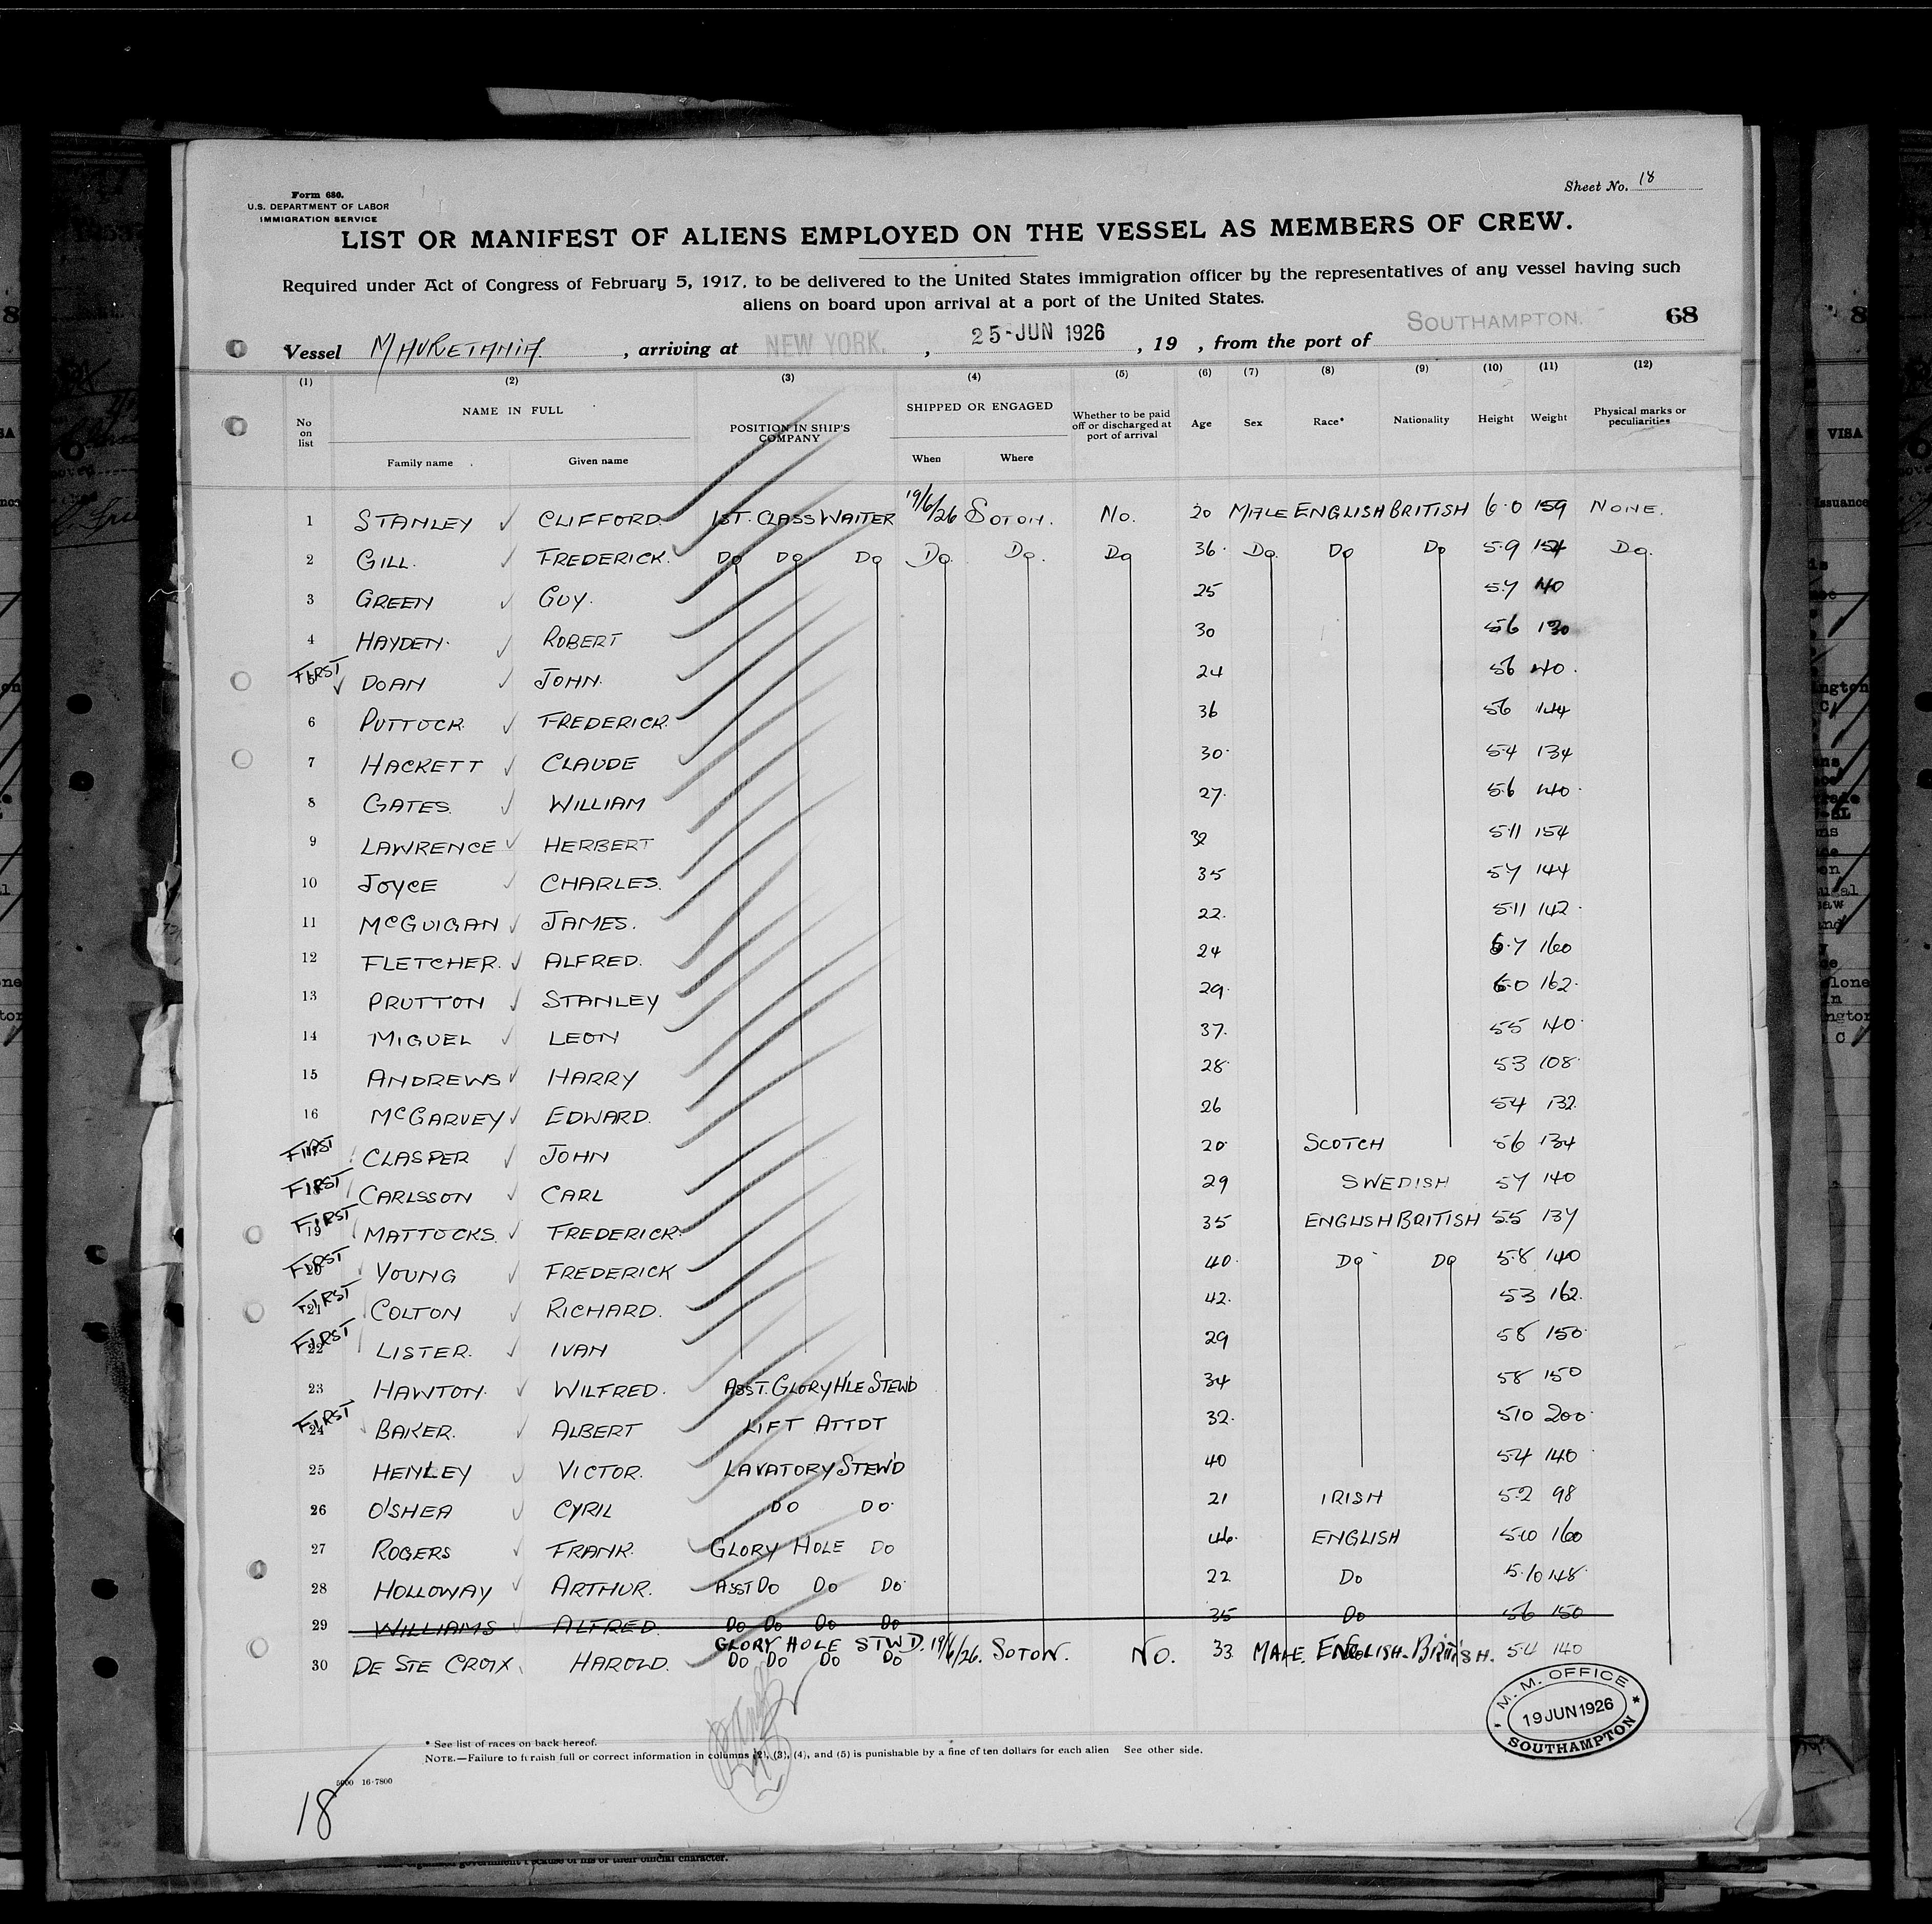 Form 680.
U.S. DEPARTMENT OF LABOR
IMMIGRATION SERVICE
Sheet No. 18
LIST OR MANIFEST OF ALIENS EMPLOYED ON THE VESSEL AS MEMBERS OF CREW.
Required under Act of Congress of February 5, 1917, to be delivered to the United States immigration officer by the representatives of any vessel having such
aliens on board upon arrival at a port of the United States.
68
Vessel MAURETANIA. , arriving at NEW YORK. , 25-JUN 1926 , 19 , from the port of SOUTHAMPTON.
(1) (2) (3) (4) (5) (6) (7) (8) (9) (10) (11) (12)
No on list NAME IN FULL POSITION IN SHIP'S COMPANY SHIPPED OR ENGAGED Whether to be paid off or discharged at port of arrival Age Sex Race* Nationality Height Weight Physical marks or peculiarities
Family name Given name When Where
1 STANLEY CLIFFORD. 1ST. CLASS WAITER 19/6/26 SOTON. No. 20 MALE ENGLISH BRITISH 6.0 159 NONE.
2 GILL. FREDERICK. Do Do Do Do. Do. Do 36. Do. Do Do 5.9 154 Do.
3 GREEN GUY. 25 5.7 140
4 HAYDEN. ROBERT 30 5.6 130
FIRST 5 DOAN JOHN. 24 5.6 140.
6 PUTTOCK. FREDERICK. 36 5.6 144
7 HACKETT CLAUDE 30. 5.4 134
8 GATES. WILLIAM 27. 5.6 140.
9 LAWRENCE HERBERT 32 5.11 154
10 JOYCE CHARLES. 35 5.7 144
11 McGUIGAN JAMES. 22. 5.11 142.
12 FLETCHER. ALFRED. 24 5.7 160
13 PRUTTON STANLEY 29. 6.0 162.
14 MIGUEL LEON 37. 5.5 140.
15 ANDREWS HARRY 28. 5.3 108.
16 McGARVEY EDWARD. 26 5.4 132.
FIRST CLASPER JOHN 20. SCOTCH 5.6 134
FIRST CARLSSON CARL 29 SWEDISH 5.7 140
FIRST 19 MATTOCKS. FREDERICK. 35 ENGLISH BRITISH 5.5 137
FIRST 20 YOUNG FREDERICK 40. Do Do 5.8 140
FIRST 21 COLTON RICHARD. 42. 5.3 162.
FIRST 22 LISTER. IVAN 29 5.8 150.
23 HAWTON. WILFRED. ASST. GLORY H'LE STEWD 34 5.8 150
FIRST 24 BAKER. ALBERT LIFT ATTDT 32. 5.10 200.
25 HENLEY VICTOR. LAVATORY STEW'D 40 5.4 140
26 O'SHEA CYRIL DO DO. 21 IRISH 5.2 98
27 ROGERS FRANK. GLORY HOLE DO 46. ENGLISH 5.10 160
28 HOLLOWAY ARTHUR. ASST DO DO DO. 22 Do 5.10 148.
29 WILLIAMS ALFRED. Do Do Do Do 35 Do 5.6 150
GLORY HOLE STWD. 19/6/26. SOTON. NO. 33 MALE. ENGLISH. BRITISH. 5.4 140
30 DE STE CROIX. HAROLD. Do Do Do Do
M. M. OFFICE
19 JUN 1926
SOUTHAMPTON
* See list of races on back hereof.
NOTE.—Failure to furnish full or correct information in columns (2), (3), (4), and (5) is punishable by a fine of ten dollars for each alien See other side.
16-7800
18